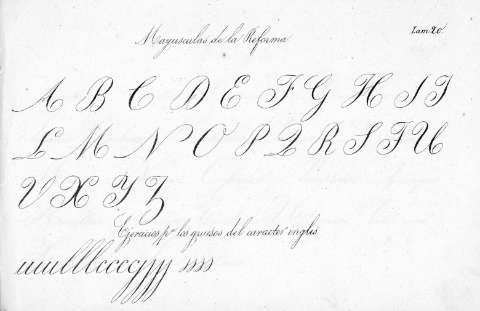 Mayusculas de la Reforma
Lam. 20.
A B C D E F G H I J
L M N O P Q R S T U
V X Y Z
Ejercicios pa. los gruesos del caracter ingles
uuulllccccjjjj ssss